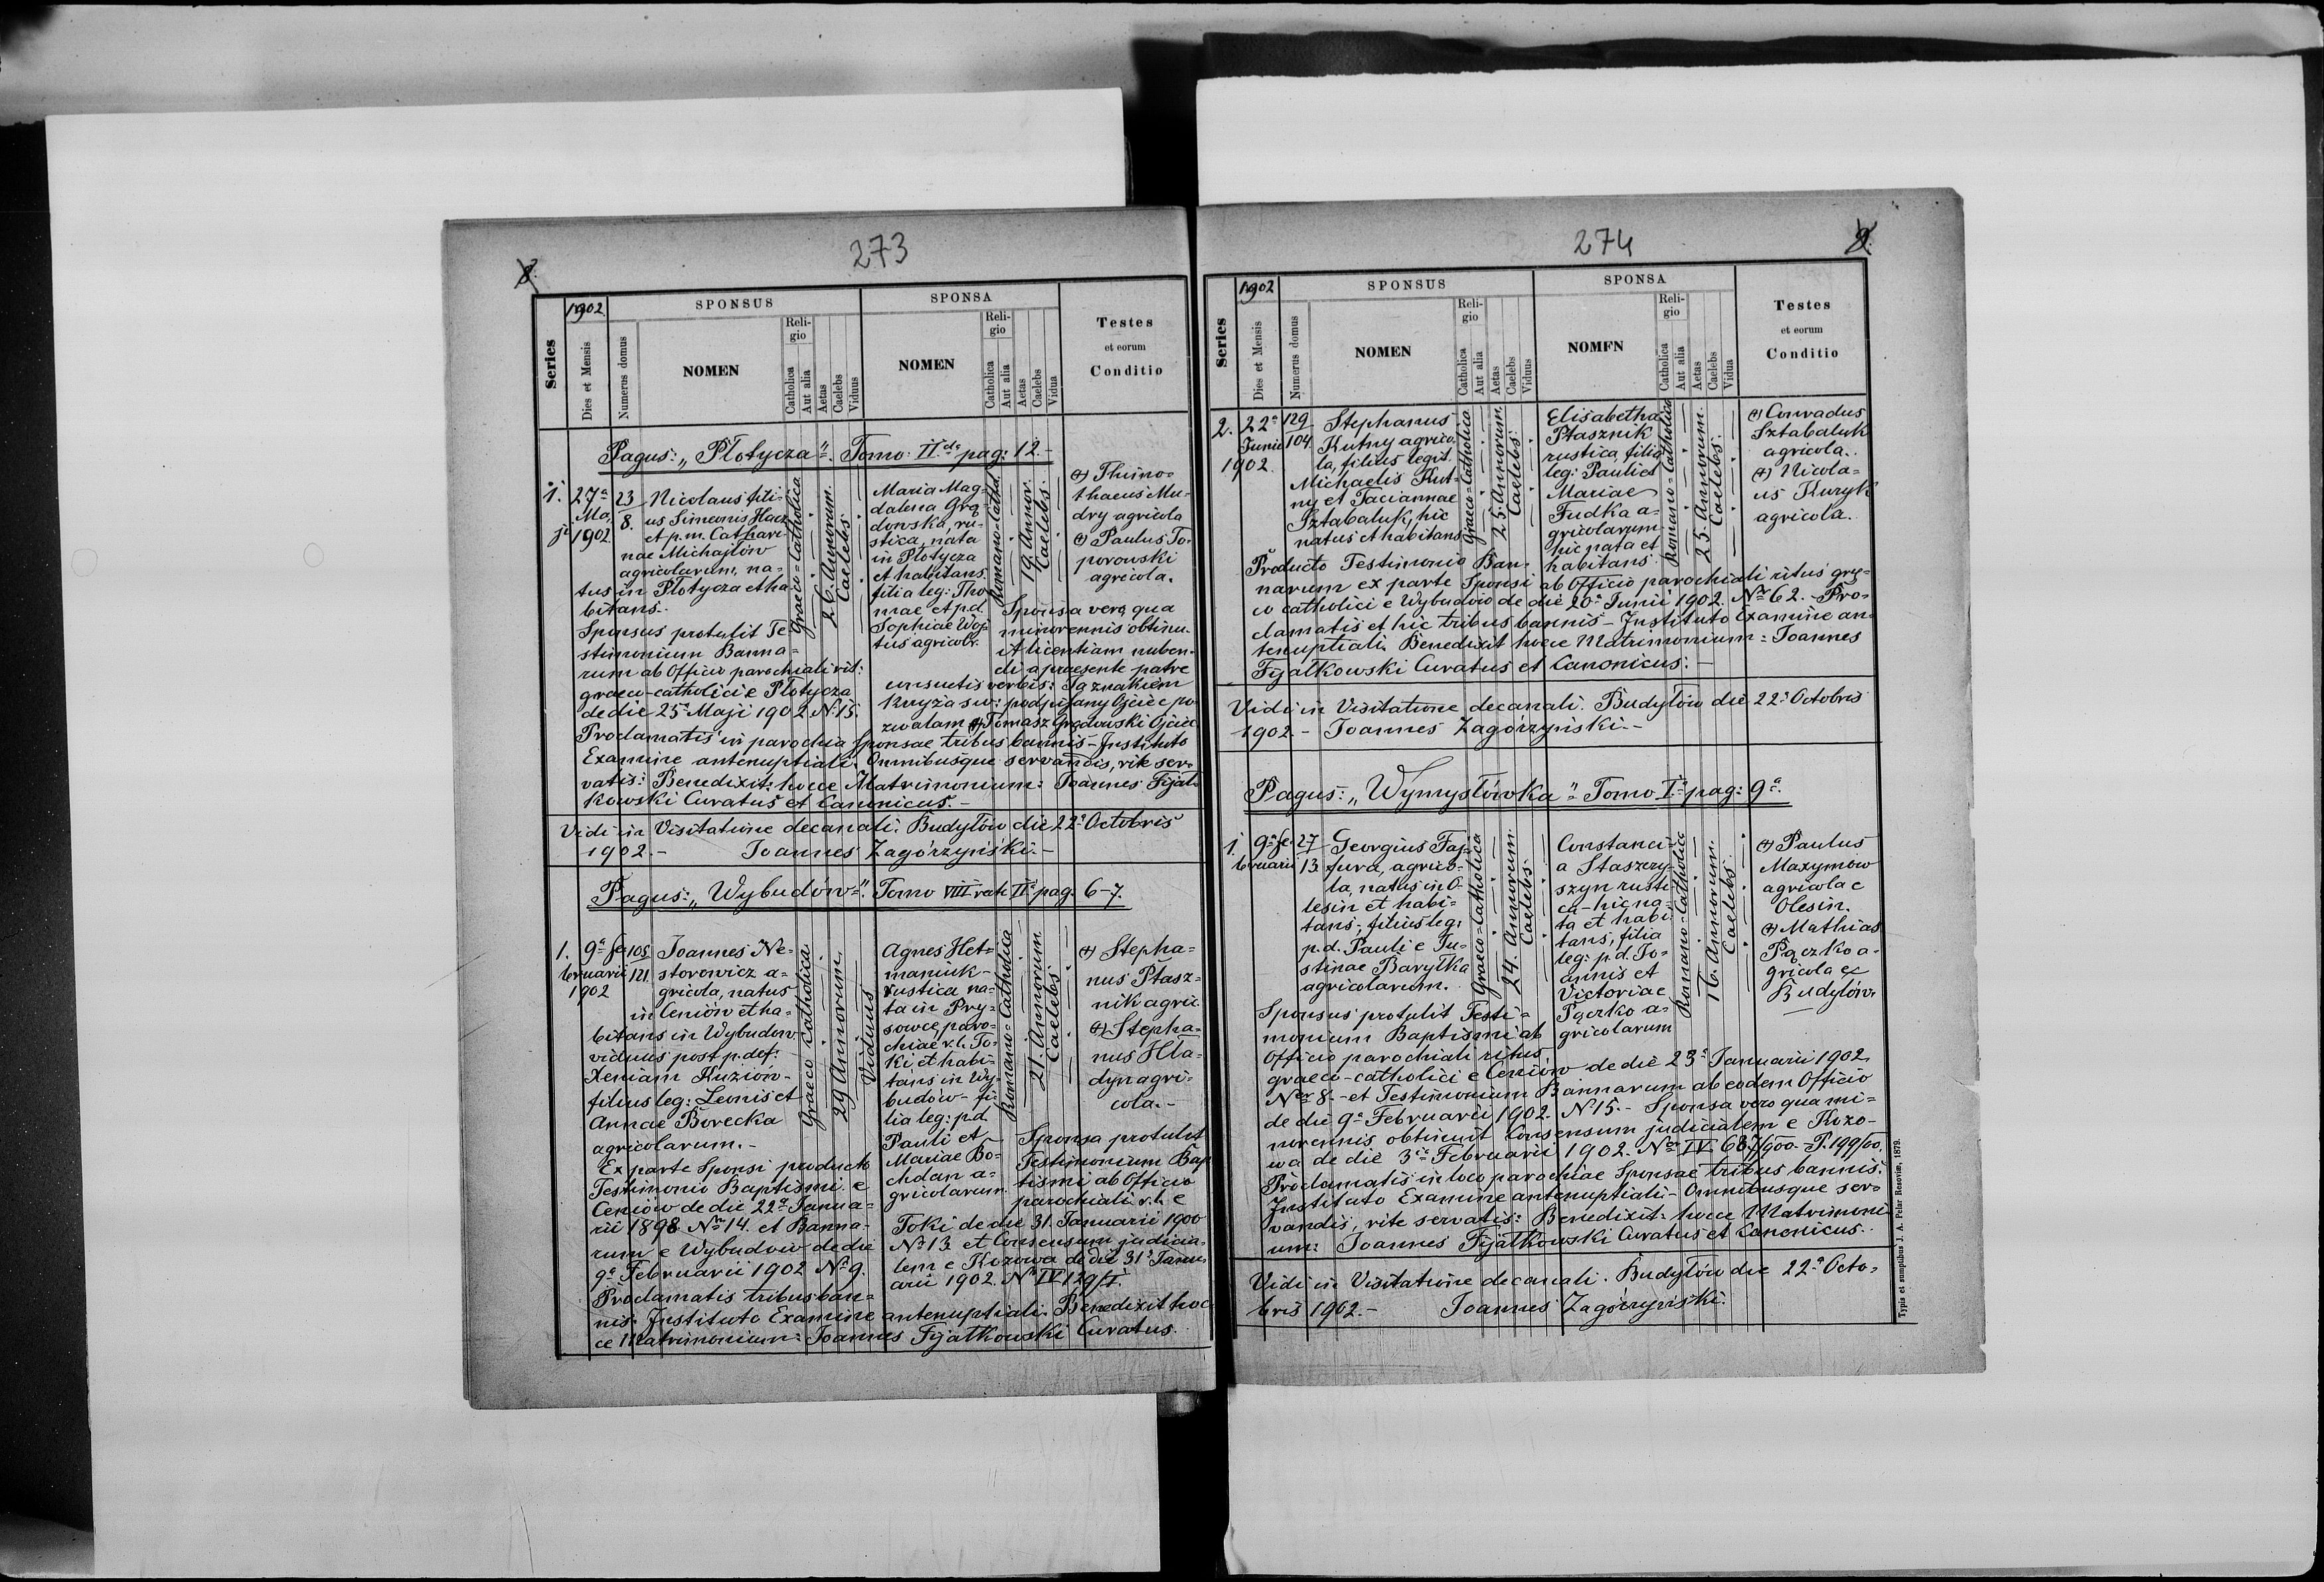 273
8.
1902.
SPONSUS
SPONSA
Series
Dies et Mensis
Numerus domus
NOMEN
Religio
Catholica
Aut alia
Aetas
Caelebs
Viduus
NOMEN
Religio
Catholica
Aut alia
Aetas
Caelebs
Vidua
Testes
et eorum
Conditio
Pagus: „Płotycza". Tomo II pag: 12.-
1.
27ª
Ma=
ji 1902.
23
8.
Nicolaus fili=
us Simeonis Hacz
et p.m. Cathari=
nae Michajłów
agricolarum, na=
tus in Płotycza et ha=
bitans.
Sponsus protulit Te=
stimonium Banna=
rum ab Officio parochiali rit:
graeco-catholici e Płotycza
de die 25ª Maji 1902 N. 15.
Graeco=Catholica
26. Annorum.
Caelebs.
Maria Mag=
dalena Grą
dowska, ru=
stica, nata
in Płotycza
et habitans.
filia leg: Tho
mae et p.d.
Sophiae Woj=
tus agricolr.
Romano-Catha.
19. Annor.
Caelebs.
(+) Thimo=
thaeus Mu=
dry agricola
(+) Paulus To=
porowski
agricola.
Sponsa vero qua
minorennis obtinu=
it licentiam nuben=
di a praesente patre
consuetis verbis: Ja znakiem
krzyża św: podpisany Ojciec po=
zwalam (+) Tomasz Grądowski Ojciec
Proclamatis in parochia Sponsae tribus bannis - Instituto
Examine antenuptiali. Omnibusque servandis, rite ser=
vatis: Benedixit hocce Matrimonium: Joannes Fijał=
kowski Curatus et Canonicus.-
Vidi in Visitatione decanali. Budyłów die 22ª Octobris
1902.- Joannes Zagórzyński.-
Pagus: „Wybudów". Tomo VIII recte II pag. 6-7.
1.
9ª Fe=
bruarii
1902
105
121.
Joannes Ne=
storowicz a=
gricola, natus
in Ceniów et ha=
bitans in Wybudów
viduus post p. def:
Xeniam Kuzión-
filius leg: Leonis et
Annae Borecka
agricolarum.-
Graeco Catholica
29 Annorum.
Viduus
Agnes Het=
maniuk-
rustica na=
ta in Pry=
sowce, paro=
chiae r.l. To=
ki et habi=
tans in Wy=
budów - fi=
lia leg: p.d.
Pauli et
Mariae Bo=
chdan a=
gricolarum.
Romano-Catholica
21. Annorum
Caelebs.
(+) Stepha=
nus Ptasz=
nik agric.
(+) Stepha=
nus Hła=
dyn agri=
cola.-
Ex parte Sponsi producto
Testimonio Baptismi e
Ceniów de die 22ª Janua=
rii 1898. Nr 14. et Banna=
rum e Wybudów de die
9ª Februarii 1902 Nr 9.
Proclamatis tribus ban=
Sponsa protulit
Testimonium Bap
tismi ab Officio
parochiali r.l. e
Toki de die 31. Januarii 1900
Nr 13. et Consensum judicia=
lem e Kozowa de die 31ª Janu=
arii 1902. Nr IV 129/1.
nis. Instituto Examine antenuptiali. Benedixit hoc=
ce Matrimonium: Joannes Fijałkowski Curatus.
274
9.
1902
SPONSUS
SPONSA
Series
Dies et Mensis
Numerus domus
NOMEN
Religio
Catholica
Aut alia
Aetas
Caelebs
Viduus
NOMEN
Religio
Catholica
Aut alia
Aetas
Caelebs
Vidua
Testes
et eorum
Conditio
2.
22ª
Junii
1902.
129
104.
Stephanus
Kutny agrico=
la, filius legit.
Michaelis Kut=
ny et Taciannae
Sztabaluk, hic
natus et habitans
Graeco=Catholica
25. Annorum.
Caelebs.
Elisabetha
Ptasznik
rustica, filia
leg: Pauli et
Mariae
Fudka a=
gricolarum
hic nata et
habitans.
Romano=Catholica
25. Annorum.
Caelebs.
(+) Conradus
Sztabaluk
agricola.
(+) Nicola=
us Kuryk
agricola.
Producto Testimonio Ban=
narum ex parte Sponsi ab Officio parochiali ritus grę=
co catholici e Wybudów de die 20ª Junii 1902. Nr 62. - Pro=
clamatis et hic tribus bannis - Instituto Examine an=
tenuptiali. Benedixit hocce Matrimonium: Joannes
Fijałkowski Curatus et Canonicus.-
Vidi in Visitatione decanali. Budyłów die 22ª Octobris
1902.- Joannes Zagórzyński.-
Pagus: „Wymysłówka" Tomo I pag: 9ª.
1.
9ª Fe=
bruarii
27
13.
Georgius Faj=
fura, agrico=
la, natus in O=
lesin et habi=
tans, filius leg:
p.d. Pauli e Ju=
stinae Baryłka
agricolarum.
Graeco=Catholica
24. Annorum.
Caelebs.
Constanci=
a Staszczy=
szyn rusti=
ca - hic na=
ta et habi=
tans, filia
leg: p.d. Jo=
annis et
Victoriae
Pączko a=
gricolarum
Romano-Catholica
16. Annorum.
Caelebs.
(+) Paulus
Maxymow
agricola e
Olesin.
(+) Mathias
Pączko a=
gricola ex
Budyłów.
Sponsus protulit Testi=
monium Baptismi ab
Officio parochiali ritus
graeco-catholici e Ceniów de die 23ª Januarii 1902
Nr 8. - et Testimonium Bannarum ab eodem Officio
de die 9ª Februarii 1902. N. 15.- Sponsa vero qua mi=
norennis obtinuit Consensum judicialem e Kozo=
wa de die 3ª Februarii 1902. Nr IV. 687/900.- P. 199/00.
Proclamatis in loco parochiae Sponsae tribus bannis.
Instituto Examine antenuptiali - Omnibusque ser=
vandis, rite servatis: Benedixit hocce Matrimoni
um: Joannes Fijałkowski Curatus et Canonicus.
Vidi in Visitatione decanali. Budyłów die 22ª Octo=
bris 1902.- Joannes Zagórzyński.
Typis et sumptibus J. A. Pelar Resoviæ, 1879.